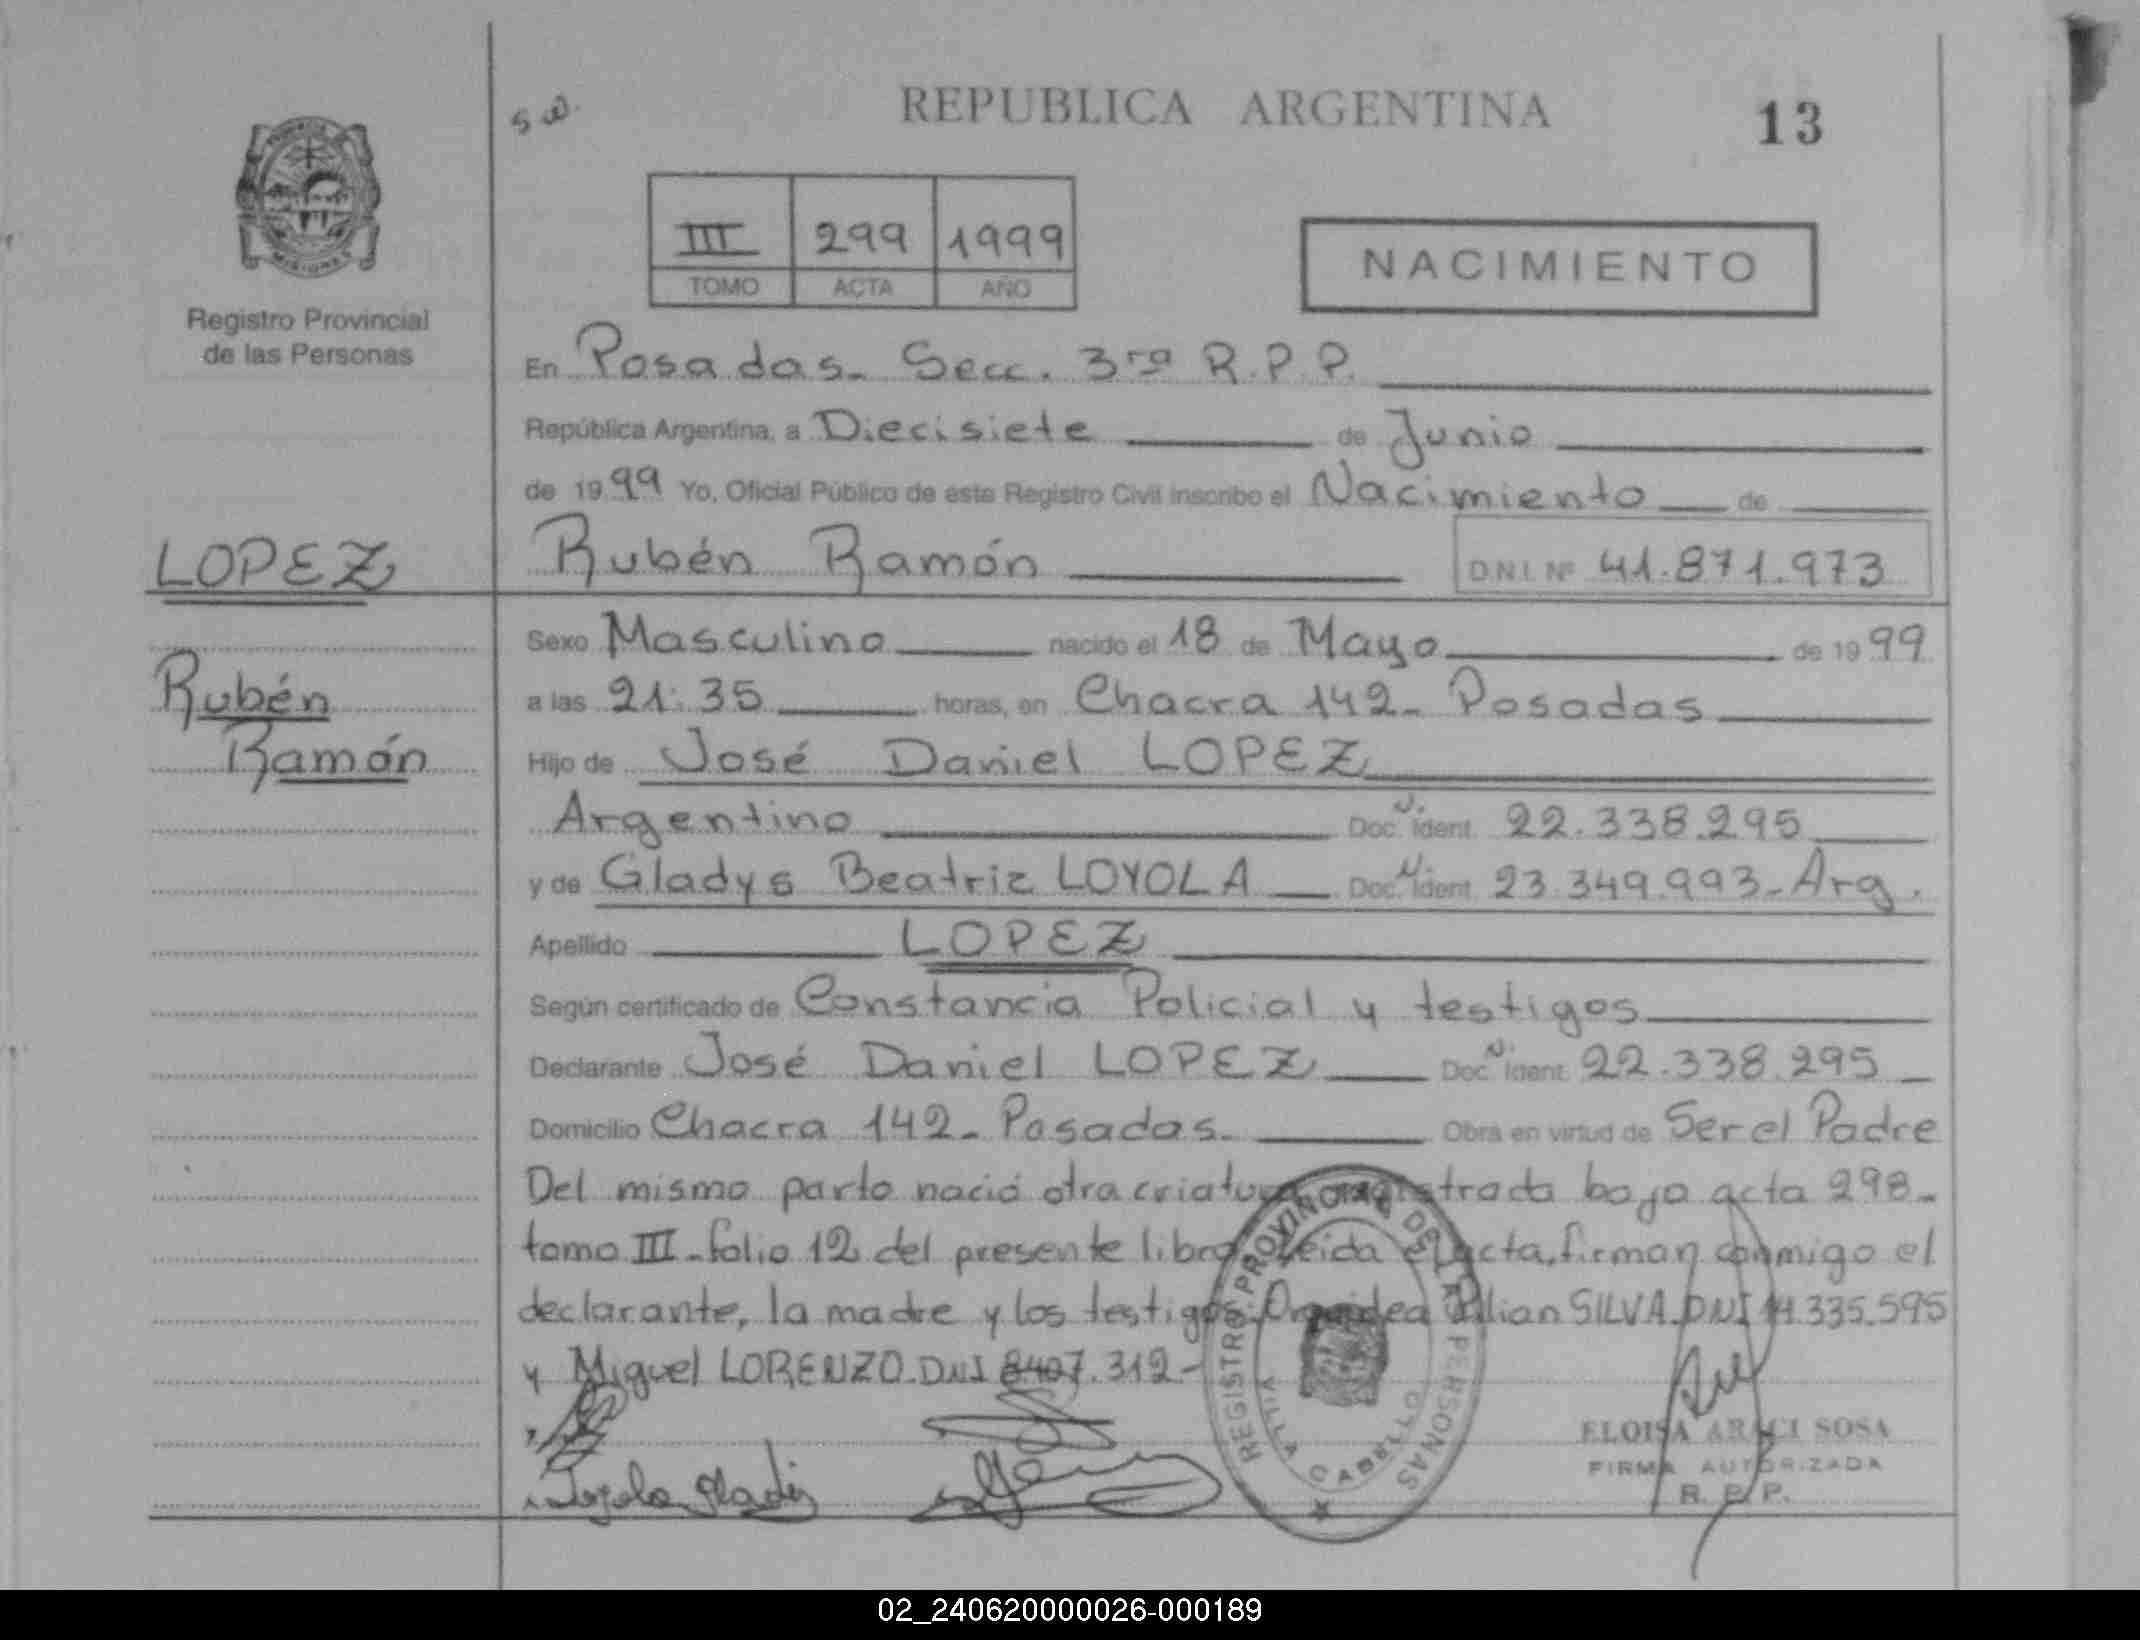 s.d.
REPUBLICA ARGENTINA
13
III 299 1999
TOMO ACTA AÑO
NACIMIENTO
PROVINCIA DE MISIONES
Registro Provincial
de las Personas
En Posadas. Secc. 3ra R.P.P.
República Argentina, a Diecisiete de Junio
de 1999 Yo, Oficial Público de este Registro Civil inscribo el Nacimiento de
LOPEZ
Rubén Ramón D.N.I. Nº 41.871.973
Sexo Masculino nacido el 18 de Mayo de 1999
Rubén
Ramón
a las 21:35 horas, en Chacra 142- Posadas
Hijo de José Daniel LOPEZ
Argentino Doc. N. Ident. 22.338.295
y de Gladys Beatriz LOYOLA Doc. N. Ident. 23.349.993- Arg.
Apellido LOPEZ
Según certificado de Constancia Policial y testigos
Declarante José Daniel LOPEZ Doc. N. Ident. 22.338.295
Domicilio Chacra 142- Posadas. Obra en virtud de Ser el Padre
Del mismo parto nació otra criatura registrada bajo acta 298-
tomo III-folio 12 del presente libro. Leida el acta, firman conmigo el
declarante, la madre y los testigos: Lilian SILVA. DNI 14.335.595
y Miguel LORENZO. DNI 8407.312-
Loyola Gladis
REGISTRO PROVINCIAL DE LAS PERSONAS
VILLA CABELLO
ELOISA ARACI SOSA
FIRMA AUTORIZADA
R. P. P.
02_240620000026-000189